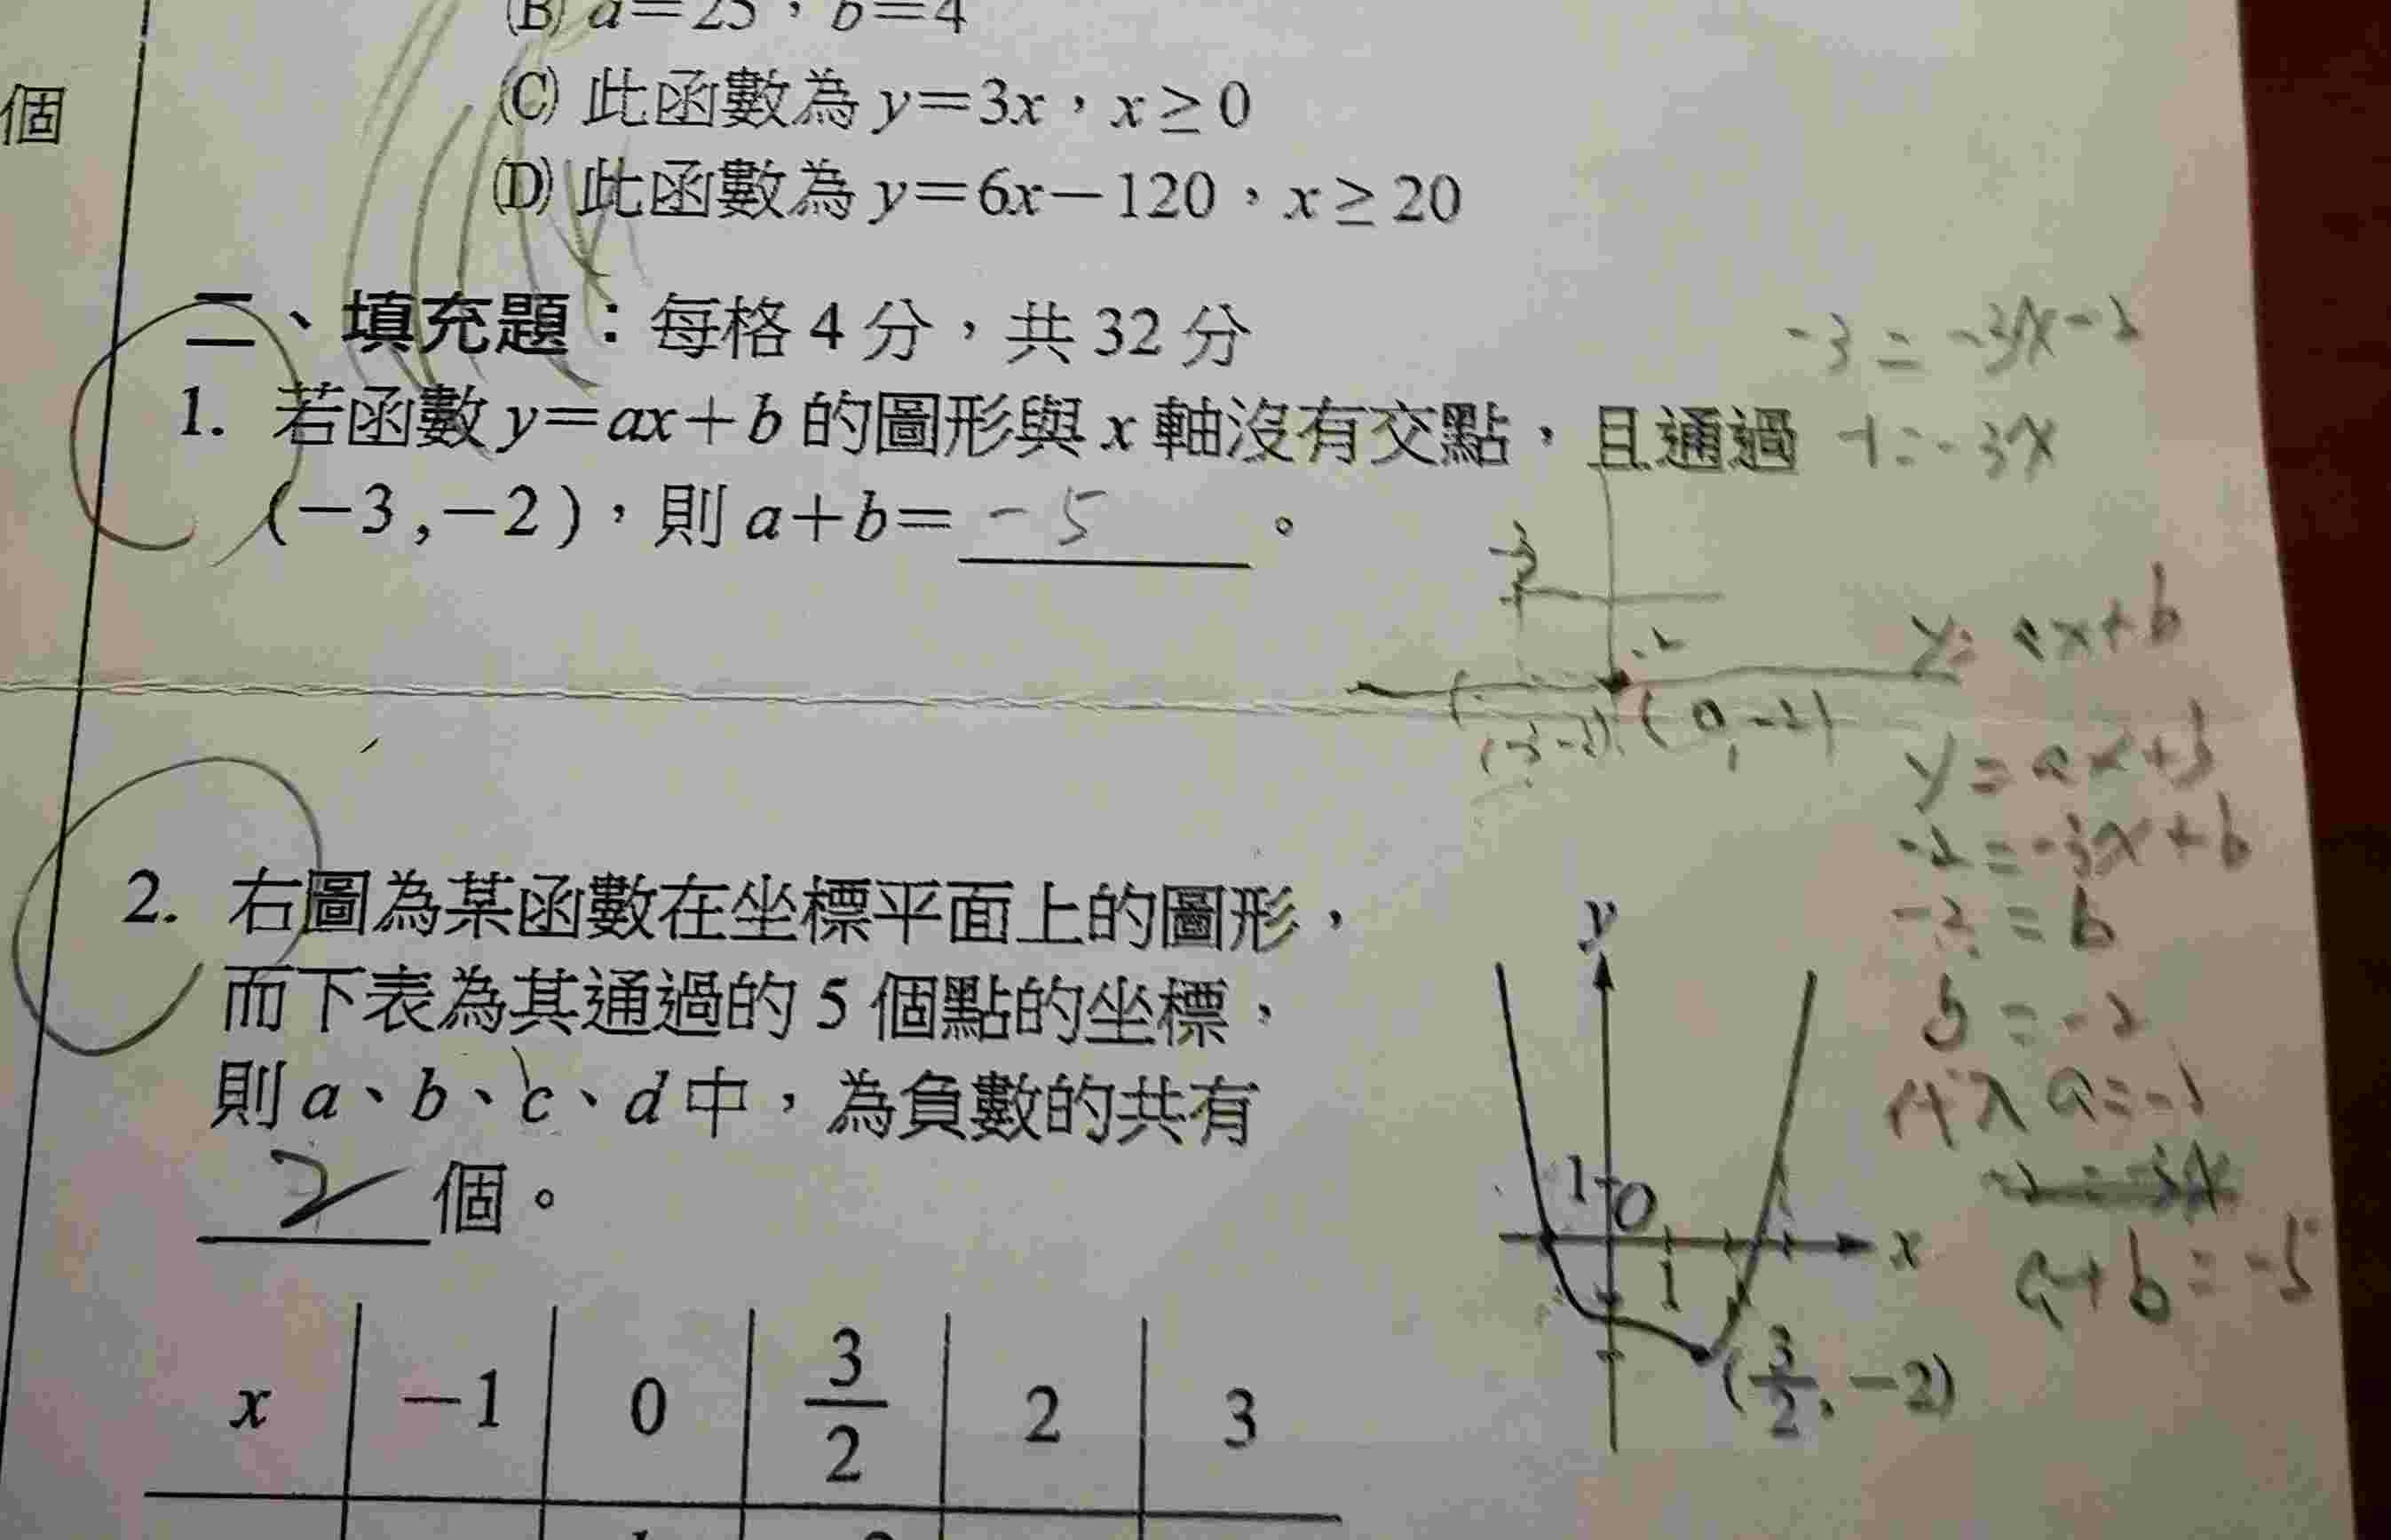 (B) a=25，b=4
個
(C) 此函數為 y=3x，x≥0
(D) 此函數為 y=6x−120，x≥20
二、填充題：每格 4 分，共 32 分
1. 若函數 y=ax+b 的圖形與 x 軸沒有交點，且通過
(−3,−2)，則 a+b= -5 。
-3 = -3x-2
-1=-3x
-3
-2
(-3-2) (0,-2)
y= ax+b
y=ax+b
-2=-3x+b
-2=b
b=-2
a=-3
a+b=-5
2. 右圖為某函數在坐標平面上的圖形，
而下表為其通過的 5 個點的坐標，
則 a、b、c、d 中，為負數的共有
2 個。
y
1
O
1
x
(3/2, −2)
x −1 0 3/2 2 3